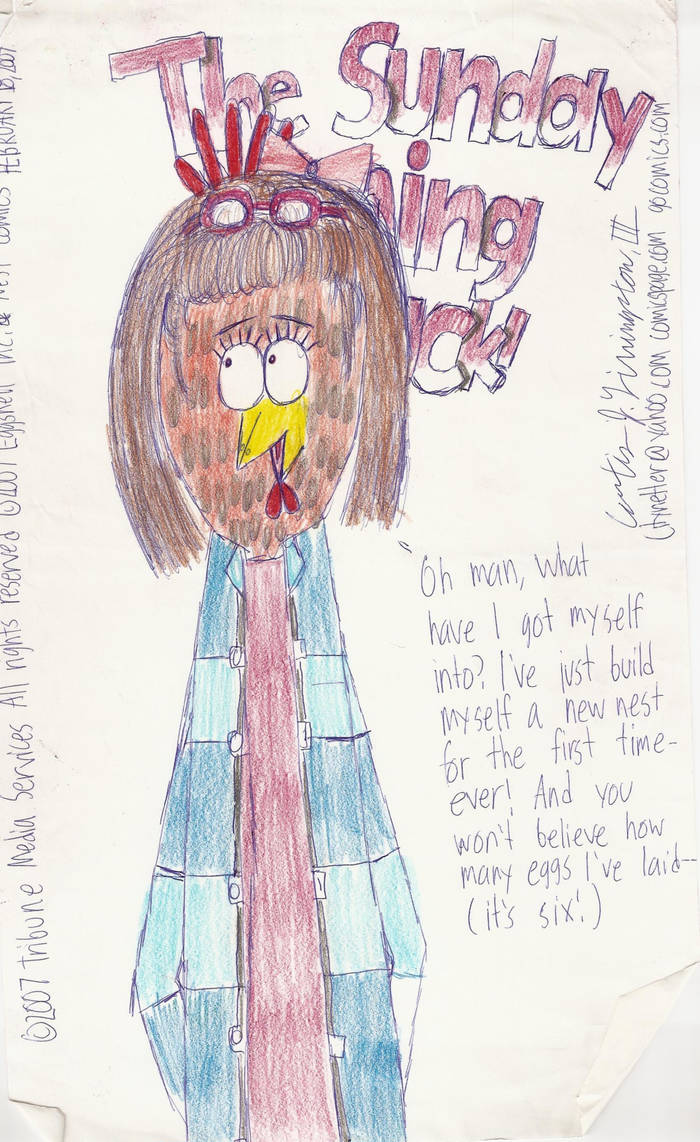 The Sunday
ning
uck!
©2007 Tribune Media Services All rights reserved ©2007 Eggshell Inc. & Nest Comics FEBRUARY
Curtis J. Livingston, III
comicspage.com gocomics.com
"Oh man, what
have I got myself
into? I've just build
myself a new nest
for the first time-
ever! And you
won't believe how
many eggs I've laid--
(it's six!)